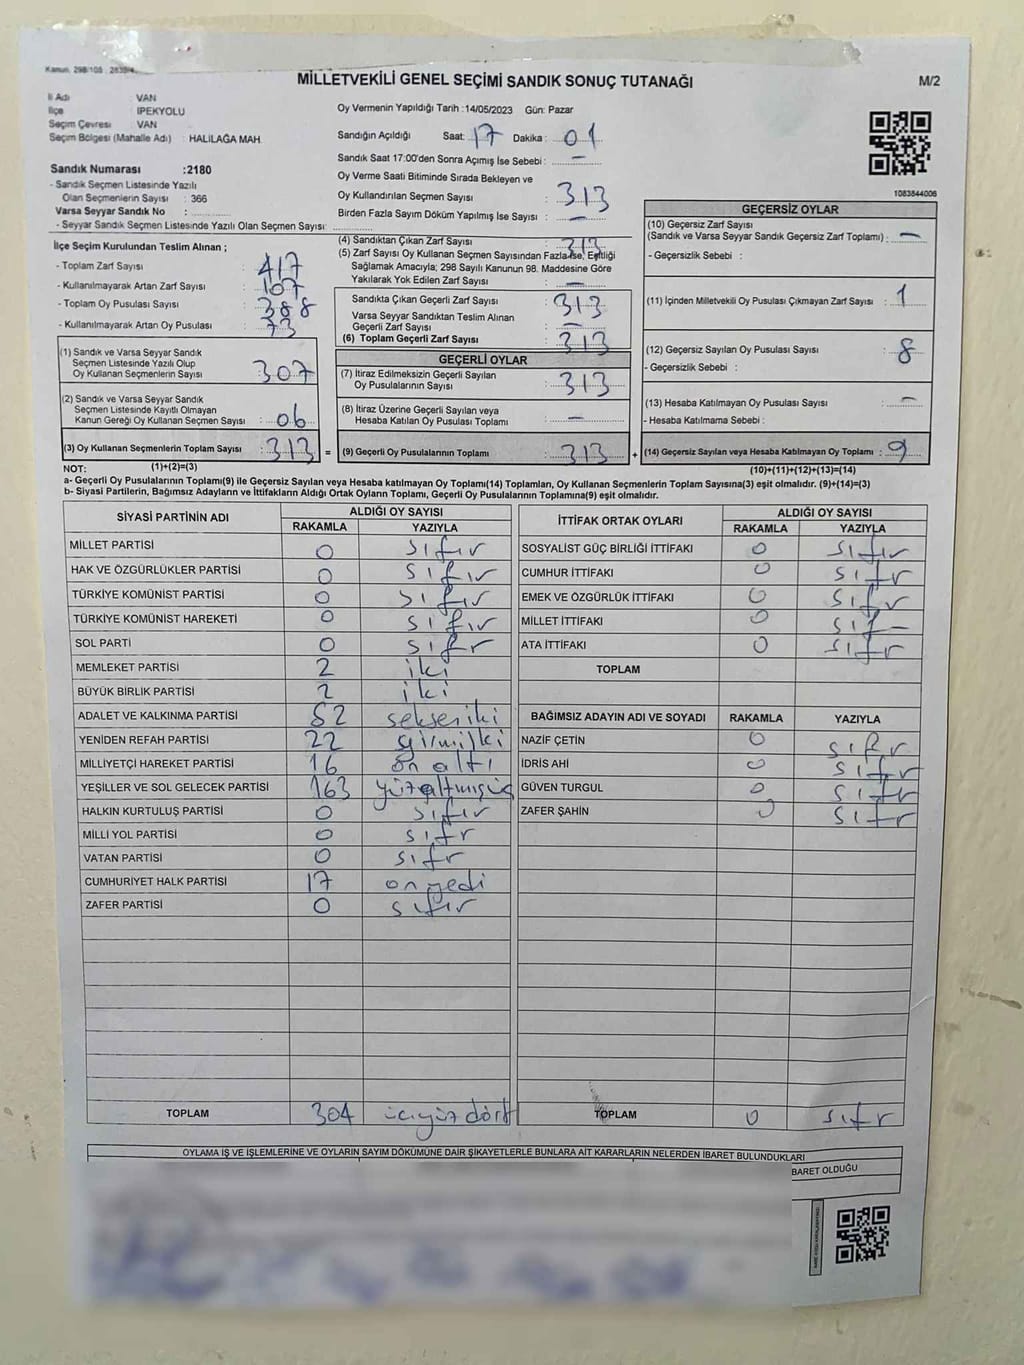 Kanun. 298/105
MİLLETVEKİLİ GENEL SEÇİMİ SANDIK SONUÇ TUTANAĞI
M/2
İl Adı : VAN
İlçe : İPEKYOLU
Seçim Çevresi : VAN
Seçim Bölgesi (Mahalle Adı) : HALİLAĞA MAH.
Sandık Numarası :2180
- Sandık Seçmen Listesinde Yazılı
Olan Seçmenlerin Sayısı : 366
Varsa Seyyar Sandık No :
- Seyyar Sandık Seçmen Listesinde Yazılı Olan Seçmen Sayısı:
Oy Vermenin Yapıldığı Tarih :14/05/2023 Gün: Pazar
Sandığın Açıldığı Saat: 17 Dakika : 01
Sandık Saat 17:00'den Sonra Açımış İse Sebebi : -
Oy Verme Saati Bitiminde Sırada Bekleyen ve
Oy Kullandırılan Seçmen Sayısı : 313
Birden Fazla Sayım Döküm Yapılmış İse Sayısı : -
1083844006
İlçe Seçim Kurulundan Teslim Alınan ;
- Toplam Zarf Sayısı : 417
- Kullanılmayarak Artan Zarf Sayısı : 107
- Toplam Oy Pusulası Sayısı : 388
- Kullanılmayarak Artan Oy Pusulası : 73
(1) Sandık ve Varsa Seyyar Sandık
Seçmen Listesinde Yazılı Olup
Oy Kullanan Seçmenlerin Sayısı : 307
(2) Sandık ve Varsa Seyyar Sandık
Seçmen Listesinde Kayıtlı Olmayan
Kanun Gereği Oy Kullanan Seçmen Sayısı : 06
(3) Oy Kullanan Seçmenlerin Toplam Sayısı : 313 =
(4) Sandıktan Çıkan Zarf Sayısı : 313
(5) Zarf Sayısı Oy Kullanan Seçmen Sayısından Fazla İse, Eşitliği
Sağlamak Amacıyla; 298 Sayılı Kanunun 98. Maddesine Göre
Yakılarak Yok Edilen Zarf Sayısı : -
Sandıkta Çıkan Geçerli Zarf Sayısı : 313
Varsa Seyyar Sandıktan Teslim Alınan
Geçerli Zarf Sayısı : -
(6) Toplam Geçerli Zarf Sayısı : 313
GEÇERLİ OYLAR
(7) İtiraz Edilmeksizin Geçerli Sayılan
Oy Pusulalarının Sayısı : 313
(8) İtiraz Üzerine Geçerli Sayılan veya
Hesaba Katılan Oy Pusulası Toplamı : -
(9) Geçerli Oy Pusulalarının Toplamı : 313 +
GEÇERSİZ OYLAR
(10) Geçersiz Zarf Sayısı
(Sandık ve Varsa Seyyar Sandık Geçersiz Zarf Toplamı) : -
- Geçersizlik Sebebi :
(11) İçinden Milletvekili Oy Pusulası Çıkmayan Zarf Sayısı : 1
(12) Geçersiz Sayılan Oy Pusulası Sayısı : 8
- Geçersizlik Sebebi :
(13) Hesaba Katılmayan Oy Pusulası Sayısı : -
- Hesaba Katılmama Sebebi :
(14) Geçersiz Sayılan veya Hesaba Katılmayan Oy Toplamı : 9
NOT: (1)+(2)=(3)
(10)+(11)+(12)+(13)=(14)
a- Geçerli Oy Pusulalarının Toplamı(9) ile Geçersiz Sayılan veya Hesaba katılmayan Oy Toplamı(14) Toplamları, Oy Kullanan Seçmenlerin Toplam Sayısına(3) eşit olmalıdır. (9)+(14)=(3)
b- Siyasi Partilerin, Bağımsız Adayların ve İttifakların Aldığı Ortak Oyların Toplamı, Geçerli Oy Pusulalarının Toplamına(9) eşit olmalıdır.
SİYASİ PARTİNİN ADI ALDIĞI OY SAYISI
RAKAMLA YAZIYLA
MİLLET PARTİSİ 0 sıfır
HAK VE ÖZGÜRLÜKLER PARTİSİ 0 sıfır
TÜRKİYE KOMÜNİST PARTİSİ 0 sıfır
TÜRKİYE KOMÜNİST HAREKETİ 0 sıfır
SOL PARTİ 0 sıfır
MEMLEKET PARTİSİ 2 iki
BÜYÜK BİRLİK PARTİSİ 2 iki
ADALET VE KALKINMA PARTİSİ 82 seksen iki
YENİDEN REFAH PARTİSİ 22
MİLLİYETÇİ HAREKET PARTİSİ 16 on altı
YEŞİLLER VE SOL GELECEK PARTİSİ 163 yüzaltmışüç
HALKIN KURTULUŞ PARTİSİ 0 sıfır
MİLLİ YOL PARTİSİ 0 sıfır
VATAN PARTİSİ 0 sıfır
CUMHURİYET HALK PARTİSİ 17 on yedi
ZAFER PARTİSİ 0 sıfır
TOPLAM 304 üçyüz dört
İTTİFAK ORTAK OYLARI ALDIĞI OY SAYISI
RAKAMLA YAZIYLA
SOSYALİST GÜÇ BİRLİĞİ İTTİFAKI 0 sıfır
CUMHUR İTTİFAKI 0 sıfır
EMEK VE ÖZGÜRLÜK İTTİFAKI 0 sıfır
MİLLET İTTİFAKI 0 sıfır
ATA İTTİFAKI 0 sıfır
TOPLAM
BAĞIMSIZ ADAYIN ADI VE SOYADI RAKAMLA YAZIYLA
NAZİF ÇETİN 0 sıfır
İDRİS AHİ 0 sıfır
GÜVEN TURGUL 0 sıfır
ZAFER ŞAHİN 0 sıfır
TOPLAM 0 sıfır
OYLAMA İŞ VE İŞLEMLERİNE VE OYLARIN SAYIM DÖKÜMÜNE DAİR ŞİKAYETLERLE BUNLARA AİT KARARLARIN NELERDEN İBARET BULUNDUKLARI
BARET OLDUĞU